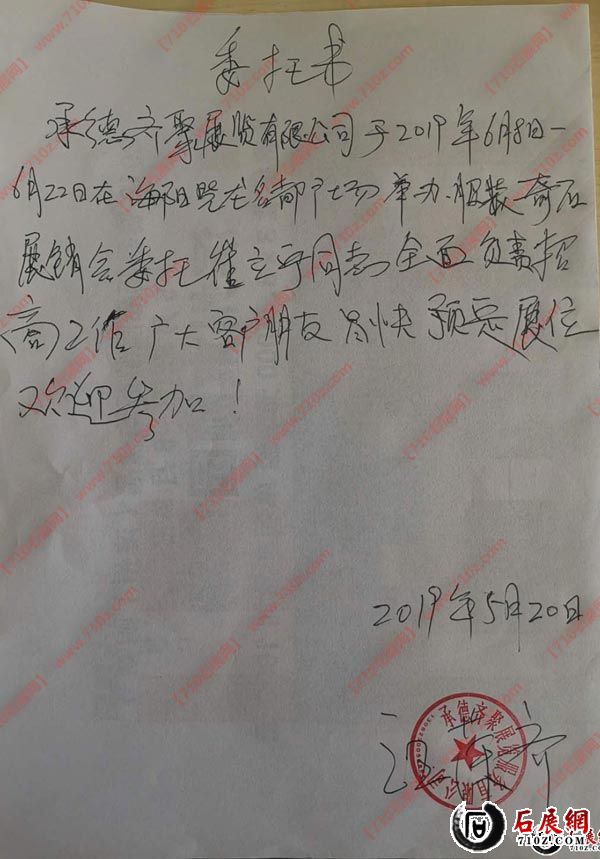 委托书
承德齐聚展览有限公司于2019年6月8日一
6月22日在海阳龙名都广场举办服装奇石
展销会委托崔立平同志全面负责招
商工作广大客户朋友尽快预定展位
欢迎参加！
2019年5月20日
承德齐聚展览服务有限公司
石展網
710z.com
【710石展网】 www.710z.com